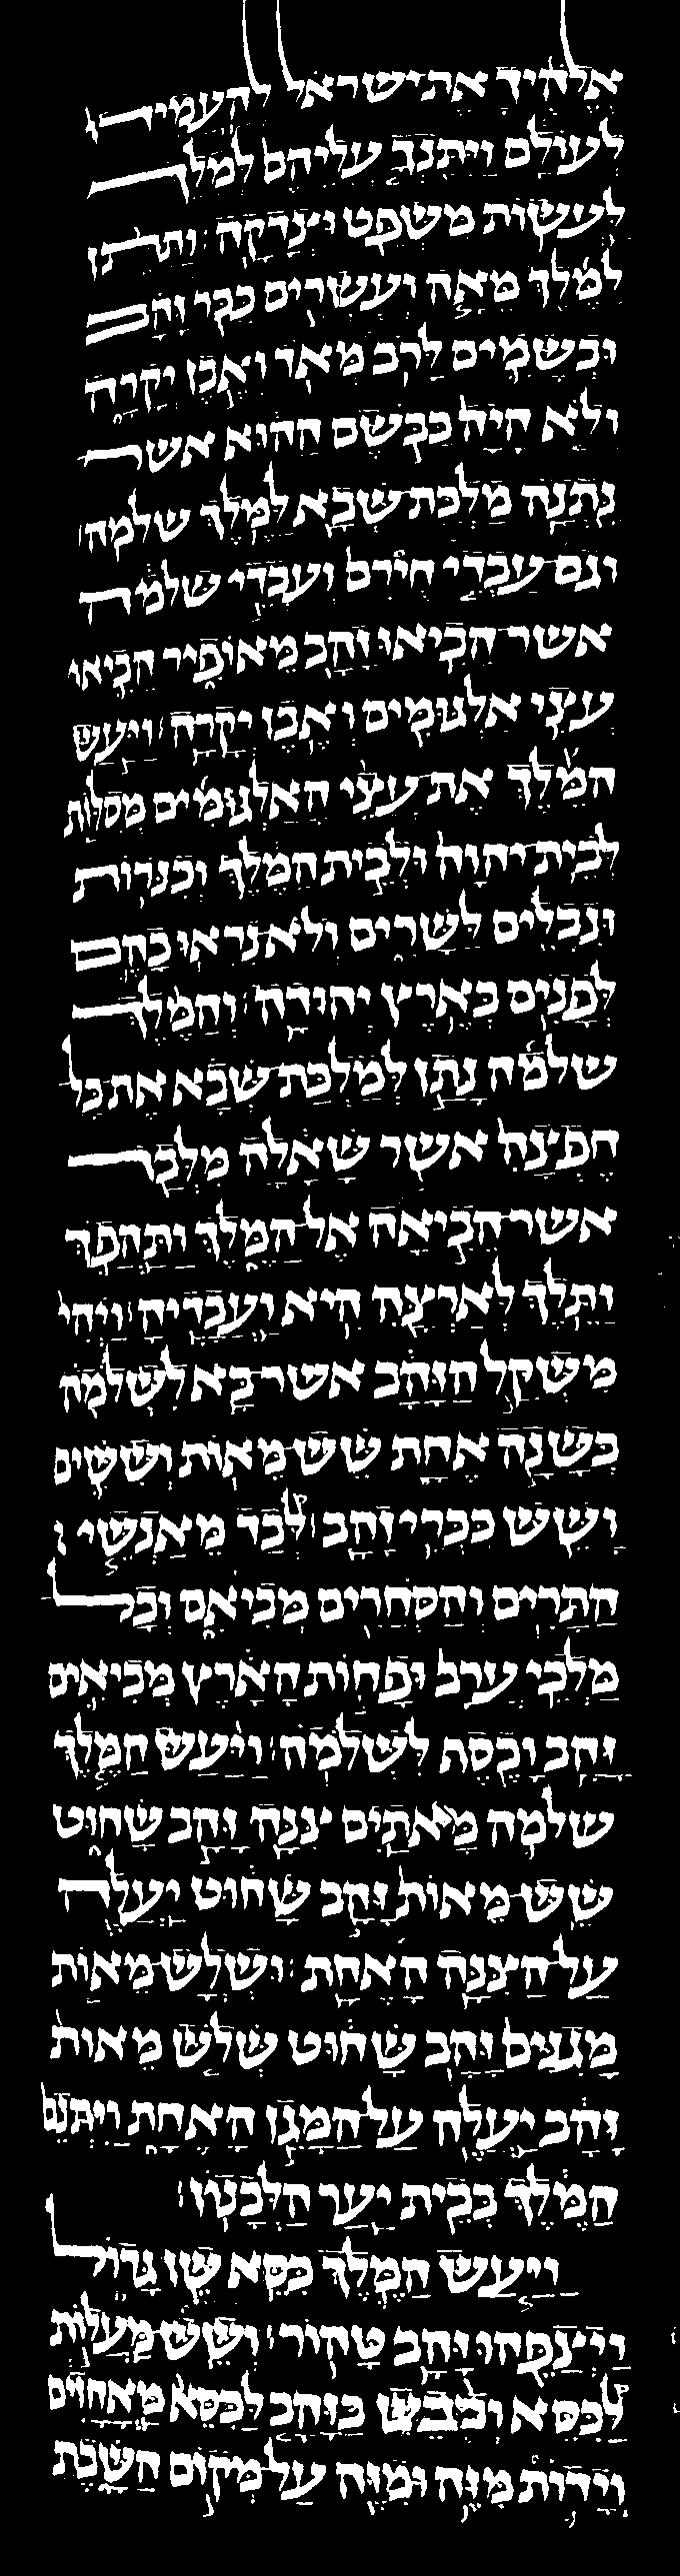 אלהיך את־ישראל להעמידו
לעולם ויתנך עליהם למלך
לעשות משפט וצדקה׃ ותתן
למלך מאה ועשרים ככר זהב
ובשמים לרב מאד ואבן יקרה
ולא היה כבשם ההוא אשר
נתנה מלכת־שבא למלך שלמה׃
וגם עבדי חירם ועבדי שלמה
אשר־הביאו זהב מאופיר הביאו
עצי אלגומים ואבן יקרה׃ ויעש
המלך את־עצי האלגומים מסלות
לבית־יהוה ולבית המלך וכנרות
ונבלים לשרים ולא־נראו כהם
לפנים בארץ יהודה׃ והמלך
שלמה נתן למלכת־שבא את־כל
חפצה אשר שאלה מלבד
אשר־הביאה אל־המלך ותהפך
ותלך לארצה היא ועבדיה׃ ויהי
משקל הזהב אשר־בא לשלמה
בשנה אחת שש מאות וששים
ושש ככרי זהב׃ לבד מאנשי
התרים והסחרים מביאם וכל
מלכי ערב ופחות הארץ מביאים
זהב וכסף לשלמה׃ ויעש המלך
שלמה מאתים צנה זהב שחוט
שש מאות זהב שחוט יעלה
על־הצנה האחת׃ ושלש־מאות
מגנים זהב שחוט שלש מאות
זהב יעלה על־המגן האחת ויתנם
המלך בבית יער הלבנון׃
ויעש המלך כסא שן גדול
ויצפהו זהב טהור׃ ושש מעלות
לכסא וכבש בזהב לכסא מאחזים
וידות מזה ומזה על־מקום השבת